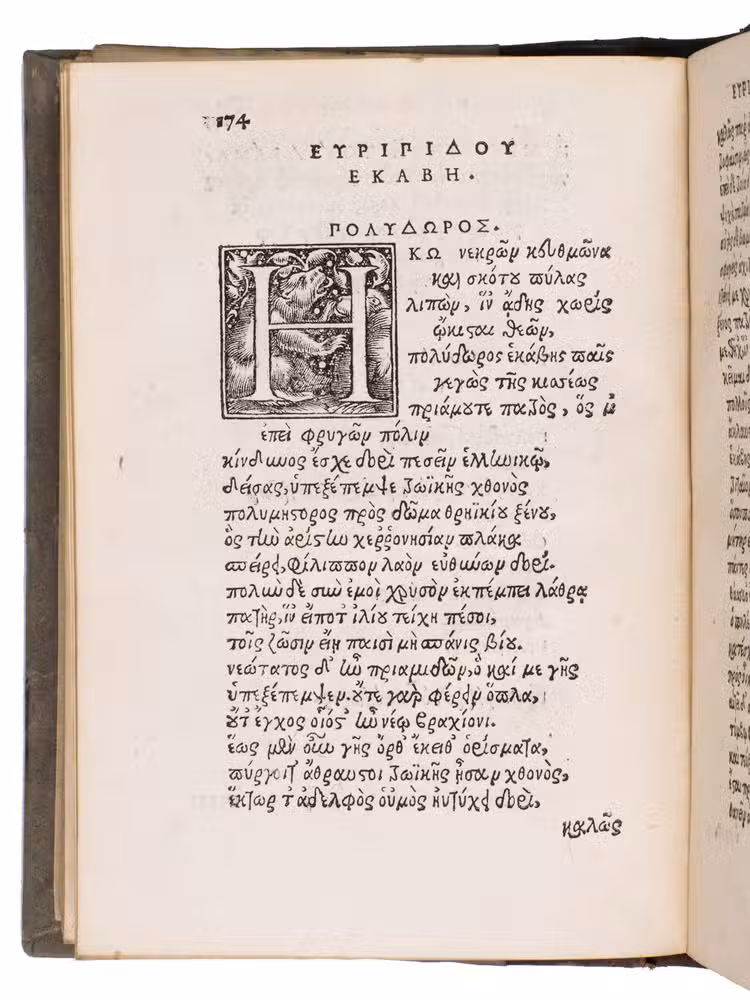 174
ΕΥΡΙΠΙΔΟΥ
ΕΚΑΒΗ.
ΠΟΛΥΔΩΡΟΣ.
ΗΚΩ νεκρῶν κευθμῶνα
καὶ σκότου πύλας
λιπὼν, ἵν᾽ ἅδης χωρὶς
ᾤκισται θεῶν,
πολύδωρος ἑκάβης παῖς
γεγὼς τῆς κισέως
πριάμουτε πατρὸς, ὅς μ᾽
ἐπεὶ φρυγῶν πόλιν
κίνδυνος ἔσχε δορὶ πεσεῖν ἑλληνικῷ,
δείσας, ὑπεξέπεμψε τρωϊκῆς χθονὸς
πολυμήστορος πρὸς δῶμα θρηϊκίου ξένου,
ὃς τὴν ἀρίστην χερρονησίαν πλάκα
σπείρει, φίλιππον λαὸν εὐθύνων δορί.
πολὺν δὲ σὺν ἐμοὶ χρυσὸν ἐκπέμπει λάθρα
πατὴρ, ἵν᾽ εἴποτ᾽ ἰλίου τείχη πέσοι,
τοῖς ζῶσιν εἴη παισὶ μὴ σπάνις βίου.
νεώτατος δ᾽ ἦν πριαμιδῶν, ὃ καί με γῆς
ὑπεξέπεμψεν. οὔτε γὰρ φέρειν ὅπλα,
οὔτ᾽ ἔγχος οἷός τ᾽ ἦν νέῳ βραχίονι.
ἕως μὲν οὖν γῆς ὄρθ᾽ ἔκειθ᾽ ὁρίσματα,
πύργοι τ᾽ ἄθραυστοι τρωϊκῆς ἦσαν χθονὸς,
ἕκτωρ τ᾽ ἀδελφὸς οὑμὸς ηὐτύχει δορὶ,
καλῶς